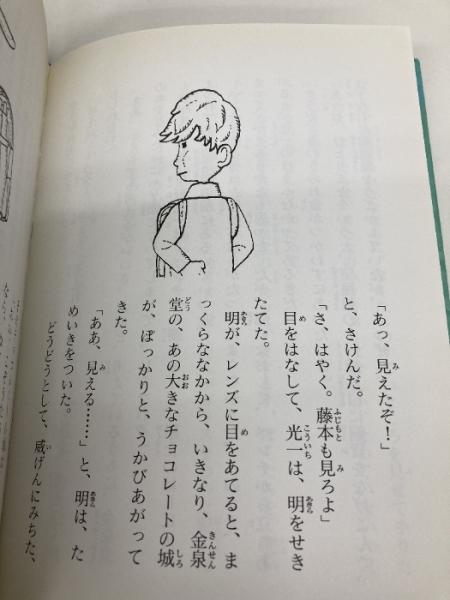 「あっ、見えたぞ！」
と、さけんだ。
「さ、はやく。藤本も見ろよ」
目をはなして、光一は、明をせき
たてた。
明が、レンズに目をあてると、ま
っくらななかから、いきなり、金泉
堂の、あの大きなチョコレートの城
が、ぽっかりと、うかびあがって
きた。
「ああ、見える……」と、明は、た
めいきをついた。
どうどうとして、威げんにみちた、